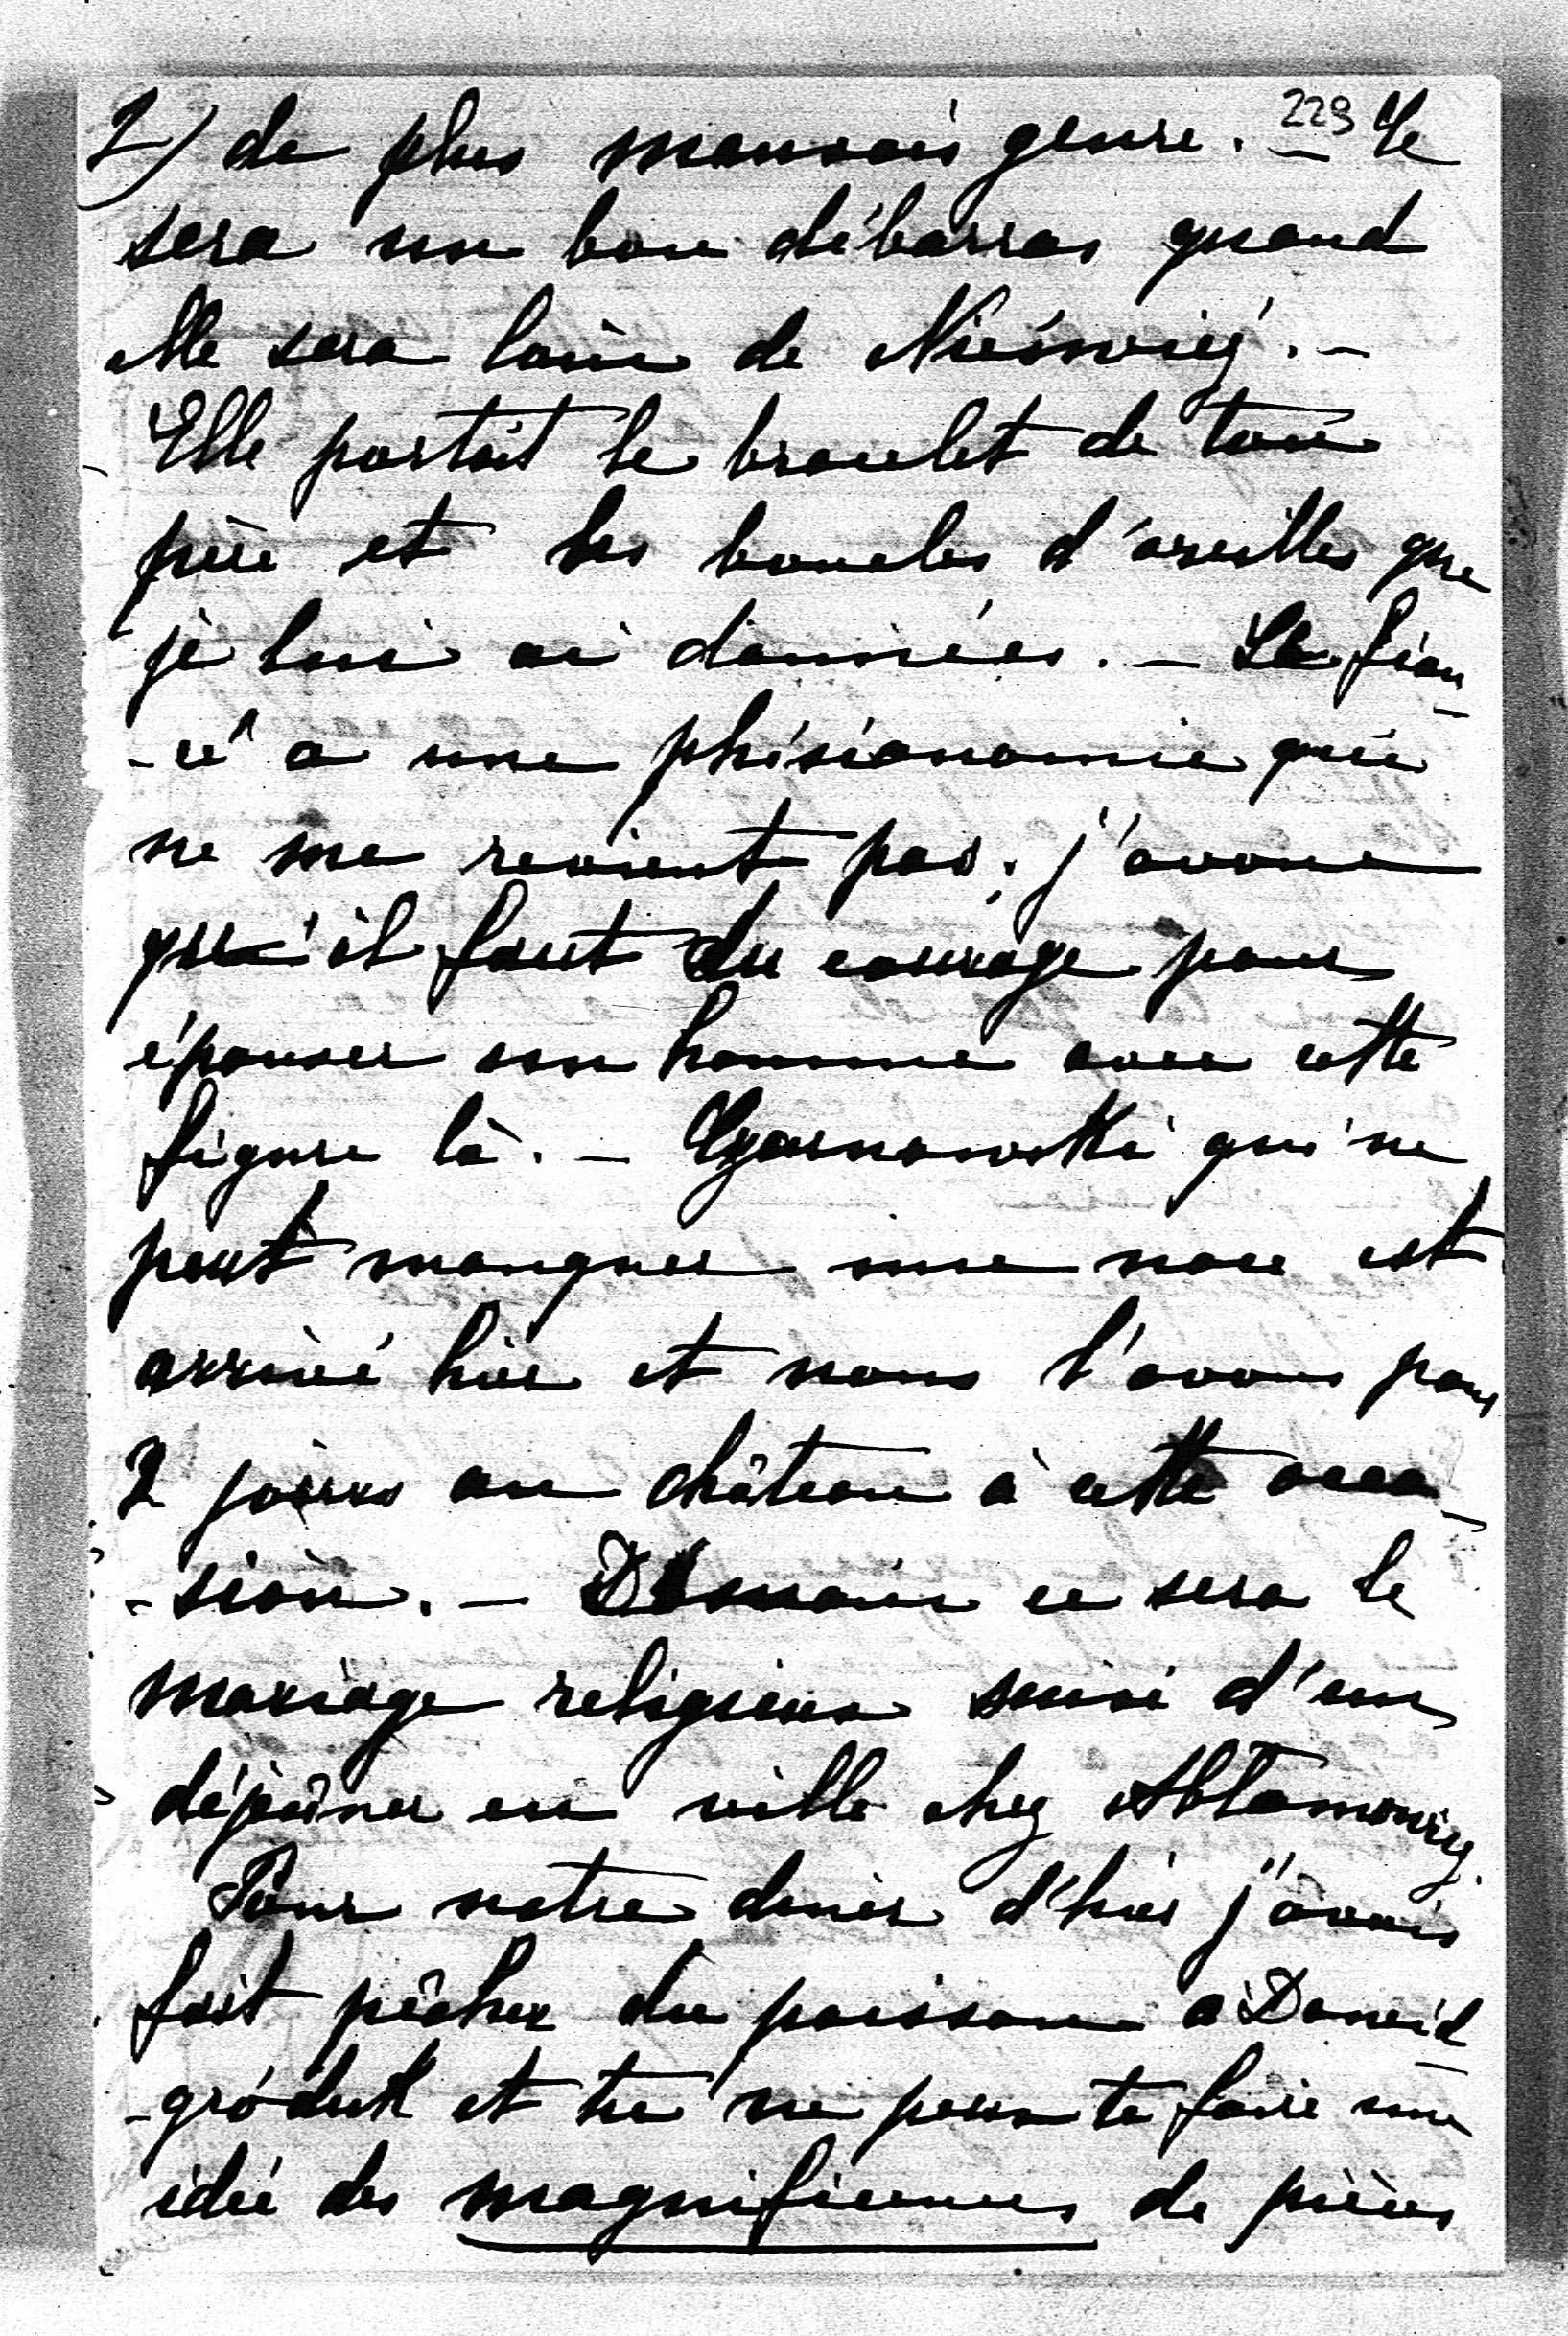 229
2) de plus mauvais genre. — Ce
sera un bon débarras quand
elle sera loin de Nieśwież. —
Elle portait le bracelet de ton
père et les boucles d'oreilles que
je lui ai données. — Le fian-
-cé a une phisionomie qui
ne me revient pas; j'avoue
qu'il faut du courage pour
épouser un homme avec cette
figure là. — Czarnowski qui ne
peut manquer une noce est
arrivé hier et nous l'avons pour
2 jours au château à cette occa-
-sion. — Demain ce sera le
mariage religieux suivi d'un
déjeûner en ville chez Abłamowicz.
Pour notre diner d'hier j'avais
fait pêcher du poisson à Dawid-
-gródek et tu ne peux te faire une
idée des magnificences de pièces